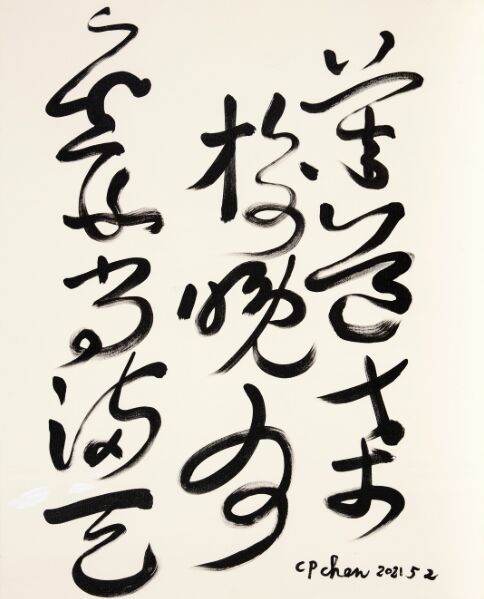 莫道桑
榆晚为
霞尚满天
CP chen 2021 5 2